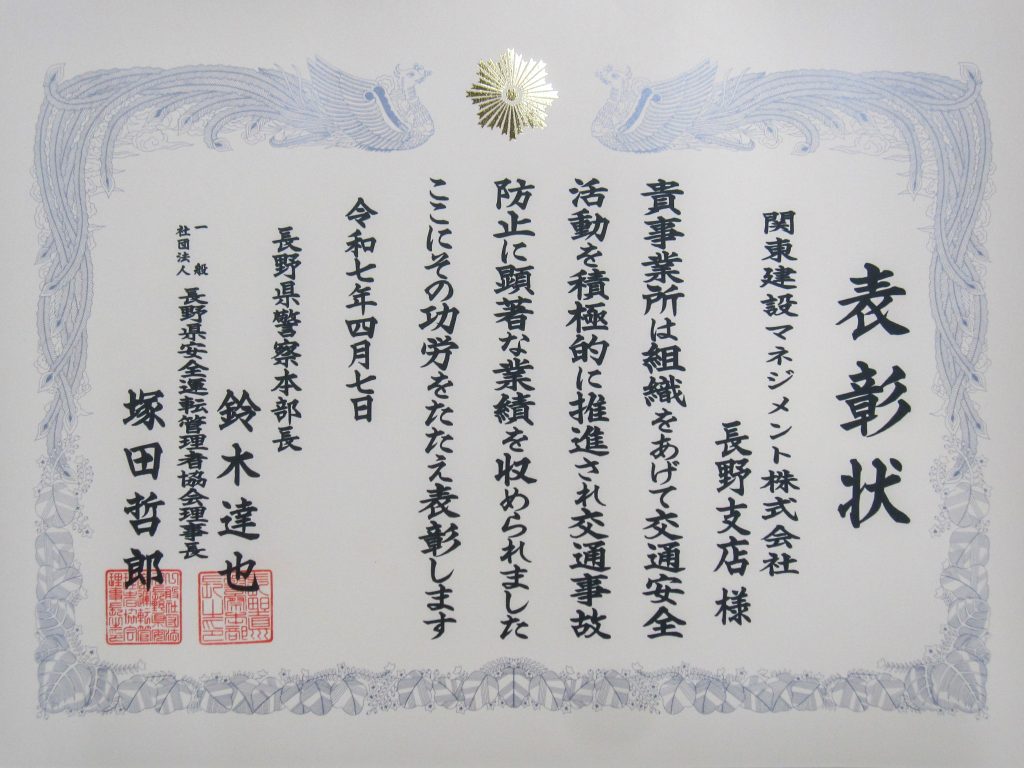 表彰状
関東建設マネジメント株式会社
長野支店様
貴事業所は組織をあげて交通安全
活動を積極的に推進され交通事故
防止に顕著な業績を収められました
ここにその功労をたたえ表彰します
令和七年四月七日
長野県警察本部長
鈴木達也
一般社団法人 長野県安全運転管理者協会理事長
塚田哲郎